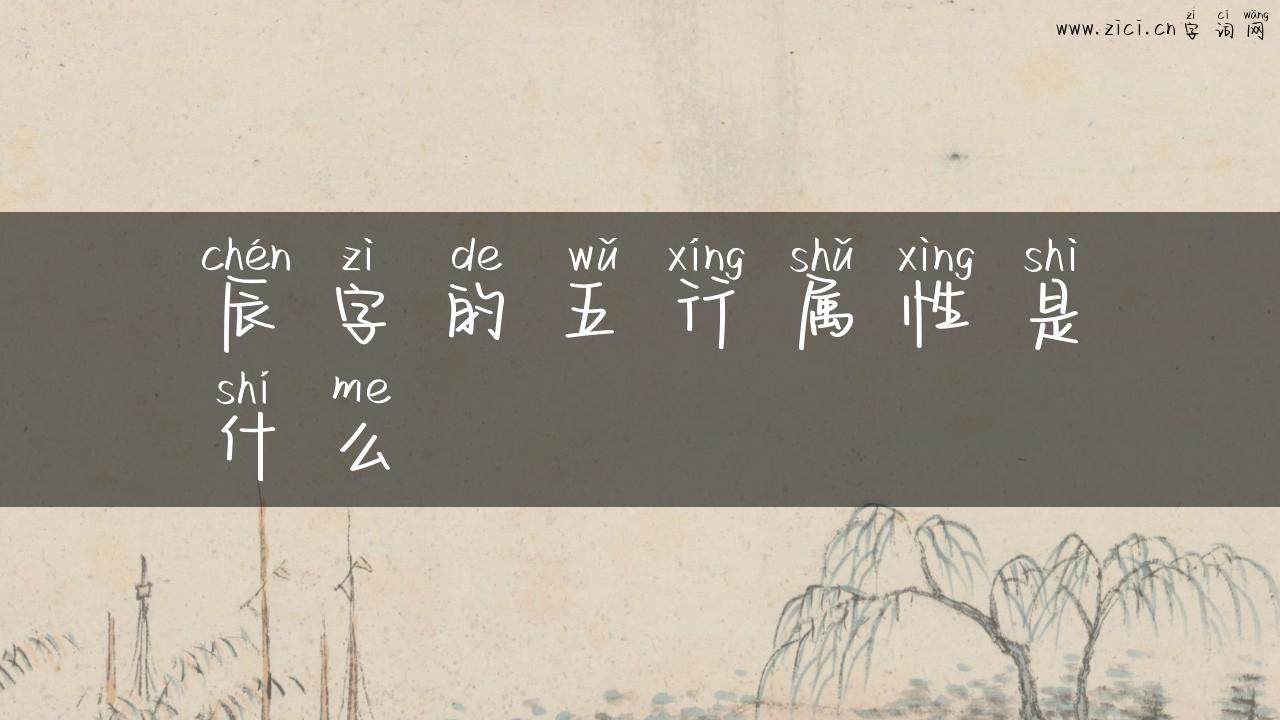 zì cí wǎng
www.zici.cn 字 词 网
chén zì de wǔ xíng shǔ xìng shì
辰 字 的 五 行 属 性 是
shí me
什 么